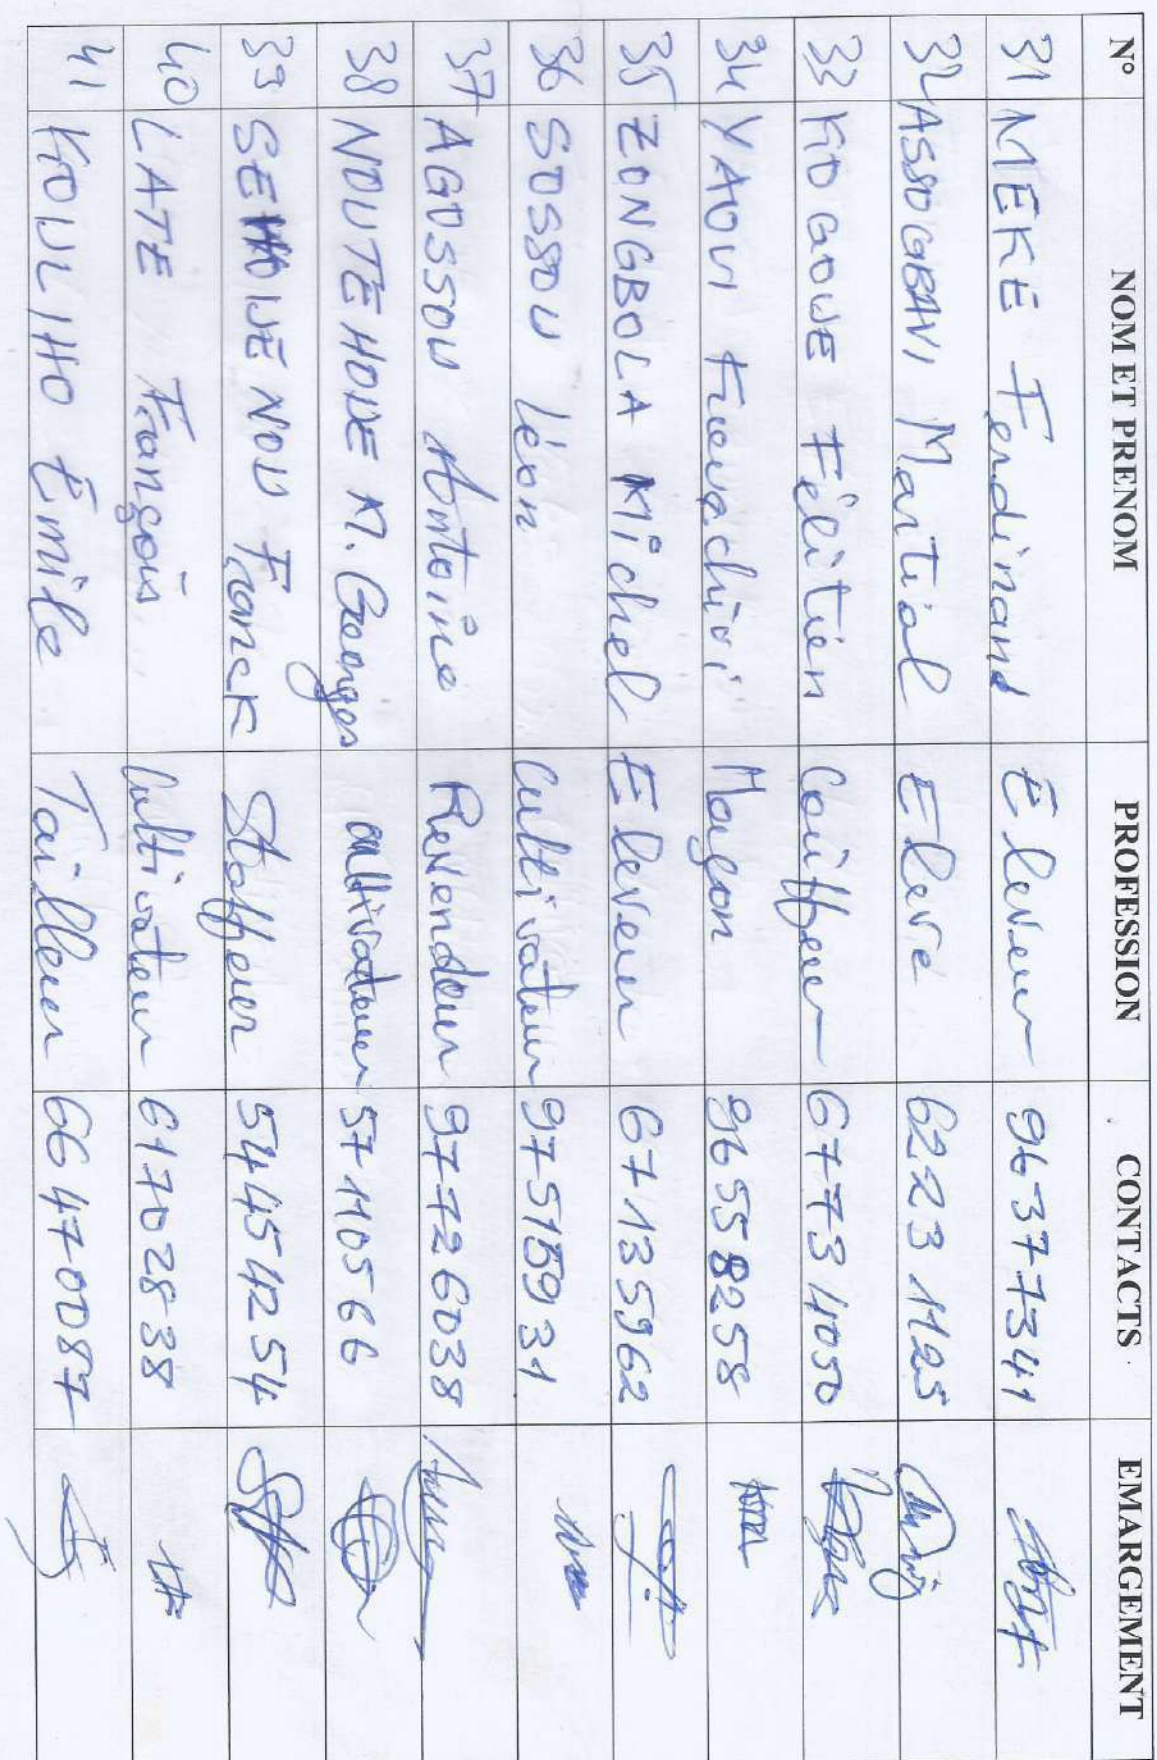 N° NOM ET PRENOM PROFESSION CONTACTS EMARGEMENT
31 MEKE Ferdinand Eleveur 96377341
32 ASSOGBAVI Martial Elevé 62231125
33 KOGOUE Félitien Coiffeur 67734050
34 YAOVI Maçon 96558258
35 ZONGBOLA Michel Eleveur 67135962
36 SOSSOU Léon Cultivateur 97515931
37 AGOSSOU Antoine Revendeur 97726038
38 NOUTEHOUE M. Georges cultivateur 57110566
39 SEHOUENOU Franck Staffeur 54454254
40 LATE François Cultivateur 61702838
41 KOULIHO Émile Tailleur 66470087